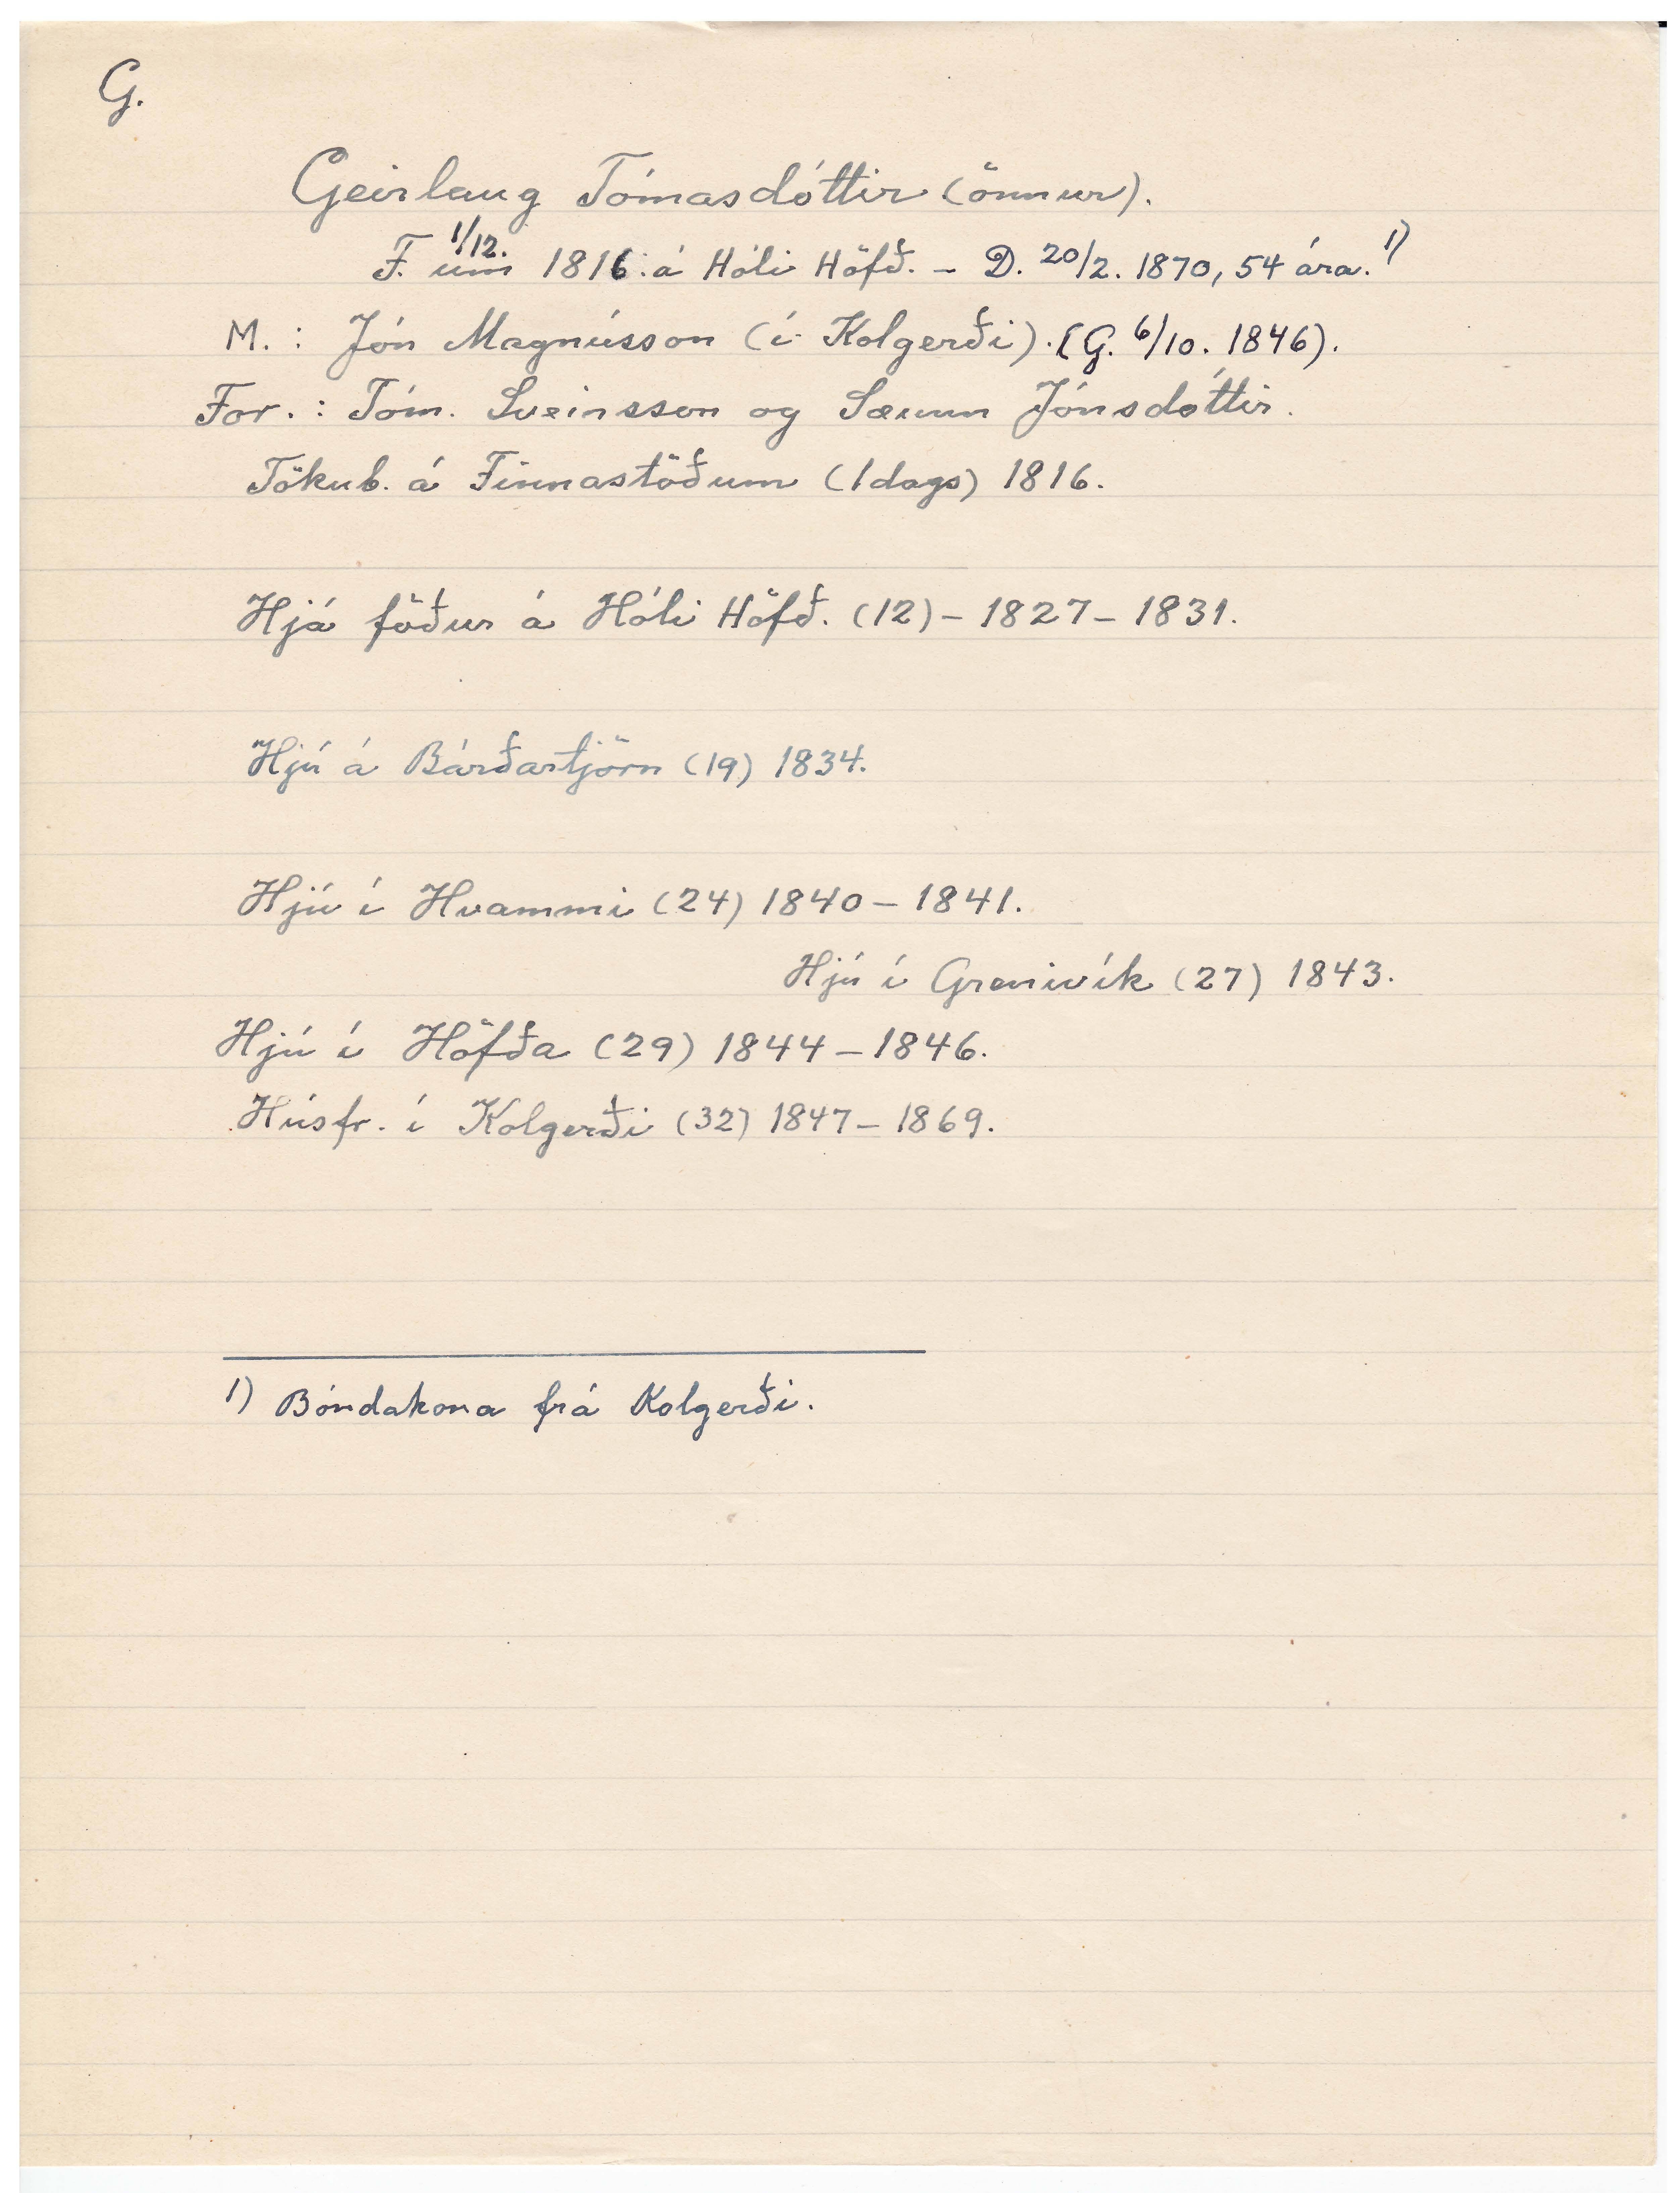 G.
Geirlaug Tómasdóttir (önnur).
F. um 1/12. 1816 á Hóli Höfð. – D. 20/2. 1870, 54 ára. 1)
M.: Jón Magnússon (í Kolgerði). (G. 6/10. 1846).
For.: Tóm. Sveinsson og Sæunn Jónsdóttir.
Tökub. á Finnastöðum (1dags) 1816.
Hjá föður á Hóli Höfð. (12) – 1827 – 1831.
Hjú á Bárðartjörn (19) 1834.
Hjú í Hvammi (24) 1840 – 1841.
Hjú í Grenivík (27) 1843.
Hjú í Höfða (29) 1844 – 1846.
Húsfr. í Kolgerði (32) 1847 – 1869.
1) Bóndakona frá Kolgerði.